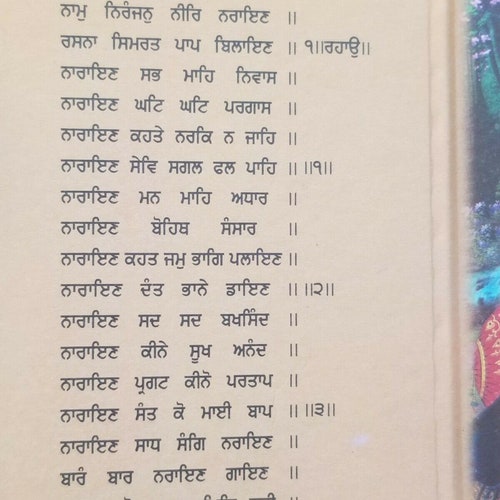 ਨਾਮੁ ਨਿਰੰਜਨੁ ਨੀਰਿ ਨਰਾਇਣ ॥
ਰਸਨਾ ਸਿਮਰਤ ਪਾਪ ਬਿਲਾਇਣ ॥ ੧॥ਰਹਾਉ॥
ਨਾਰਾਇਣ ਸਭ ਮਾਹਿ ਨਿਵਾਸ ॥
ਨਾਰਾਇਣ ਘਟਿ ਘਟਿ ਪਰਗਾਸ ॥
ਨਾਰਾਇਣ ਕਹਤੇ ਨਰਕਿ ਨ ਜਾਹਿ ॥
ਨਾਰਾਇਣ ਸੇਵਿ ਸਗਲ ਫਲ ਪਾਹਿ ॥ ॥੧॥
ਨਾਰਾਇਣ ਮਨ ਮਾਹਿ ਅਧਾਰ ॥
ਨਾਰਾਇਣ ਬੋਹਿਥ ਸੰਸਾਰ ॥
ਨਾਰਾਇਣ ਕਹਤ ਜਮੁ ਭਾਗਿ ਪਲਾਇਣ ॥
ਨਾਰਾਇਣ ਦੰਤ ਭਾਨੇ ਡਾਇਣ ॥ ॥੨॥
ਨਾਰਾਇਣ ਸਦ ਸਦ ਬਖਸਿੰਦ ॥
ਨਾਰਾਇਣ ਕੀਨੇ ਸੂਖ ਅਨੰਦ ॥
ਨਾਰਾਇਣ ਪ੍ਰਗਟ ਕੀਨੋ ਪਰਤਾਪ ॥
ਨਾਰਾਇਣ ਸੰਤ ਕੋ ਮਾਈ ਬਾਪ ॥ ॥੩॥
ਨਾਰਾਇਣ ਸਾਧ ਸੰਗਿ ਨਰਾਇਣ ॥
ਬਾਰੰ ਬਾਰ ਨਰਾਇਣ ਗਾਇਣ ॥